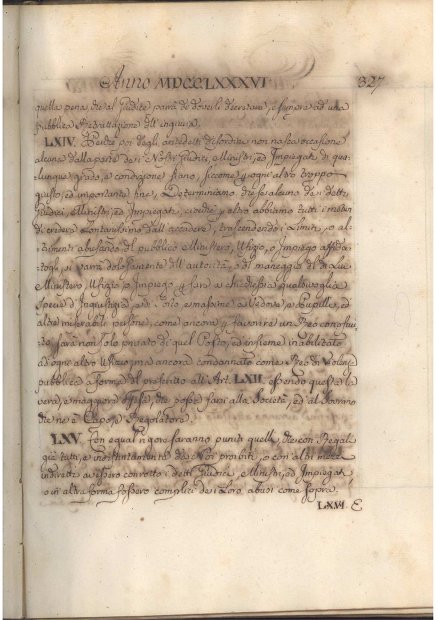 Anno MDCCLXXXVI 327
quella pena che al Giudice parrà di doversi decretare, e sempre ad una
pubblica Redrattazione dell'ingiuria.
LXIV. E perchè poi dagli antedetti disordini non nasca occasione
alcuna dalla parte dei Nostri Giudici, Ministri, ed Impiegati di qua-
lunque grado, e condizione siano, siccome per ogni altro troppo
giusto, ed importante fine, Determiniamo che se alcuno dei detti
Giudici, Ministri, ed Impiegati, ciocchè per altro abbiamo tutti i motivi
di credere lontanissimo dall'accadere, trascendendo i Limiti, o al-
trimenti abusando del pubblico Ministero, Ufizio, o Impiego affida-
togli, si varrà dolosamente dell'autorità, o di maneggio del di Lui
Ministero Ufizio o Impiego per fare a chicchessia qualsivoglia
specie d'Ingiustizia, e di Torto, e massime a Vedove, e Pupilli, ed
altre miserabili persone, come ancora per favorire un Reo conosciu-
to, sarà non solo privato di quel Posto, ed insieme inabilitato
ad ogni altro Ufizio, ma ancora condannato come Reo di Violenza
pubblica a forma del prescritto all'Art. LXII. essendo questa la
vera, e maggiore offesa, che possa farsi alla Società, ed al Sovrano
che ne è Capo, e Regolatore.
LXV. Con egual rigore saranno puniti quelli, che con Regali
già tutti, e indistintamente da Noi proibiti, o con altri mezzi
indiretti avessero corrotto i detti Giudici, e Ministri, ed Impiegati
o in altra forma fossero complici dei loro abusi come sopra.
LXVI E